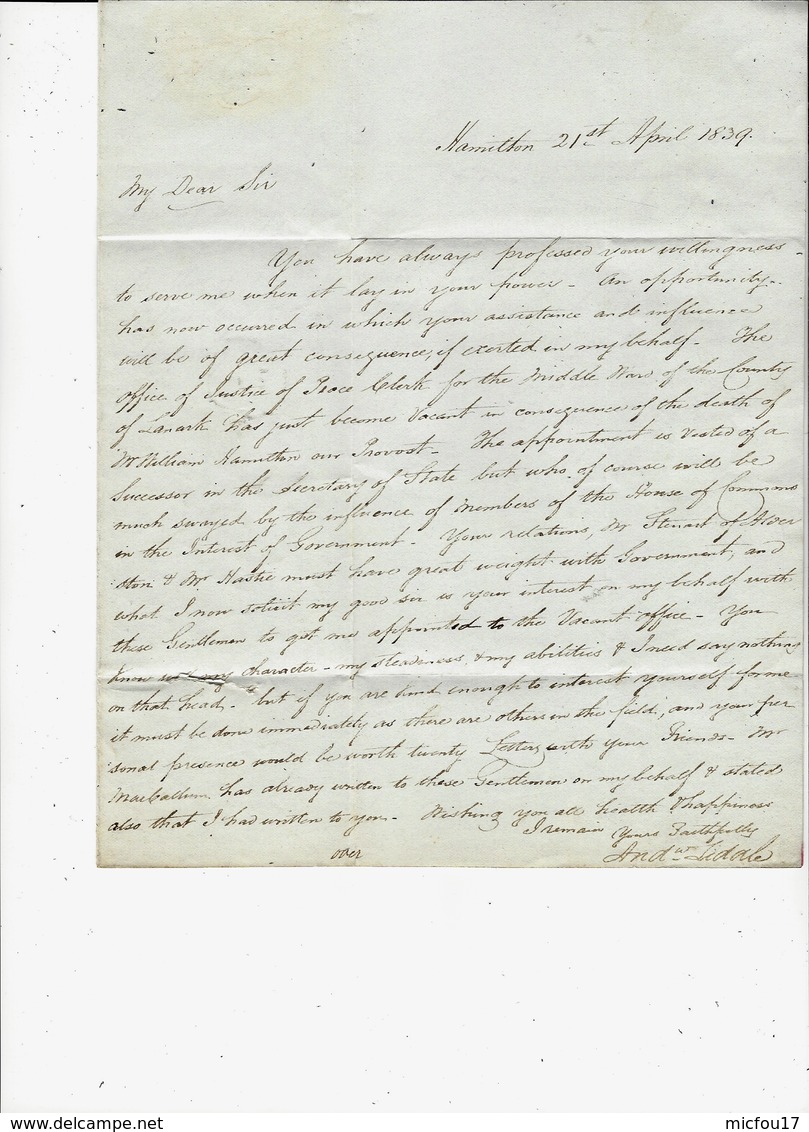 Hamilton 21st April 1839.
My Dear Sir
You have always professed your willingness
to serve me when it lay in your power - An opportunity
has now occurred in which your assistance and influence
will be of great consequence, if exerted in my behalf - The
Office of Justice of Peace Clerk for the Middle Ward of the County
of Lanark has just become Vacant in consequence of the death of
Mr William Hamilton our Provost - The appointment is Vested of a
Successor in the Secretary of State but who of course will be
much swayed by the influence of Members of the House of Commons
in the Interest of Government - Your relations, Mr Steuart of Alder
ston & Mr Hastie must have great weight with Government, and
what I now solicit my good sir is your interest on my behalf with
these Gentlemen to get me appointed to the Vacant office - You
know my character - my steadiness, & my abilities & I need say nothing
on that head - but if you are kind enough to interest yourself for me
it must be done immediately as there are others in the field, and your per
sonal presence would be worth twenty Letters with your Friends - Mr
MacCallum has already written to these Gentlemen on my behalf & stated
also that I had written to you - Wishing you all health & happiness
I remain Yours Faithfully
Andw Liddle
over
www.delcampe.net
micfou17